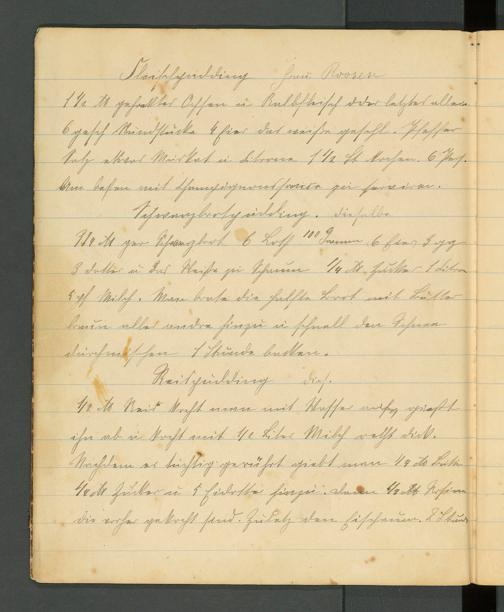 Fleischpudding Frau Roosen
1 1/2 ℔ gehacktes Ochsen u Kalbfleisch oder letztes allein
6 gesch Rundstücke 4 Eier das weiße geschl. Pfeffer
Salz etwas Muskat u Citrone 1 1/2 St kochen. 6 Pers.
Am besten mit Champignonsauce zu serviren.
Schwarzbrotpudding. dieselbe
ger Schwarzbrot 6 Loth 100 Gramm 6 Eier
3 dotter u das Weiße zu Schaum 1/4 ℔ Zucker 1 Citron
Milch. Man brate die Hälfte Brot mit Butter
braun alles andre hinzu u schnell den Schnee
durchmischen 1 Stunde backen.
Reispudding dies.
1/2 ℔ Reis kocht man mit Wasser gießt
ihn ab u kocht mit 1/2 Liter Milch recht dick.
Nachdem er tüchtig gerührt giebt man 1/4 ℔ Butter
1/4 ℔ Zucker u 5 Eidotter hinzu. dann 1/2 ℔ Rosinen
die vorher gekocht sind. Zuletzt den Eischaum. 2 Stund